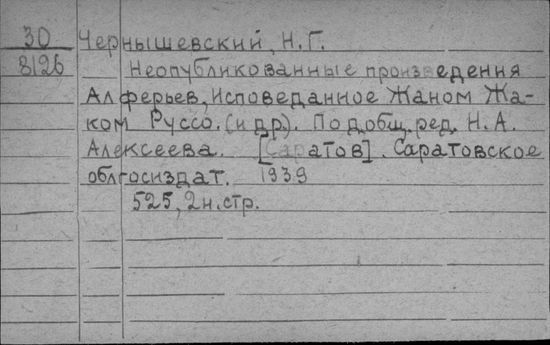 30 Чернышевский, Н.Г.
8126 Неопубликованные произведения
Алферьев, Исповеданное Жаном Жа-
ком Руссо. (и др). Под общ. ред. Н.А.
Алексеева. [Саратов]. Саратовское
облгосиздат. 1939
525, 2н.стр.